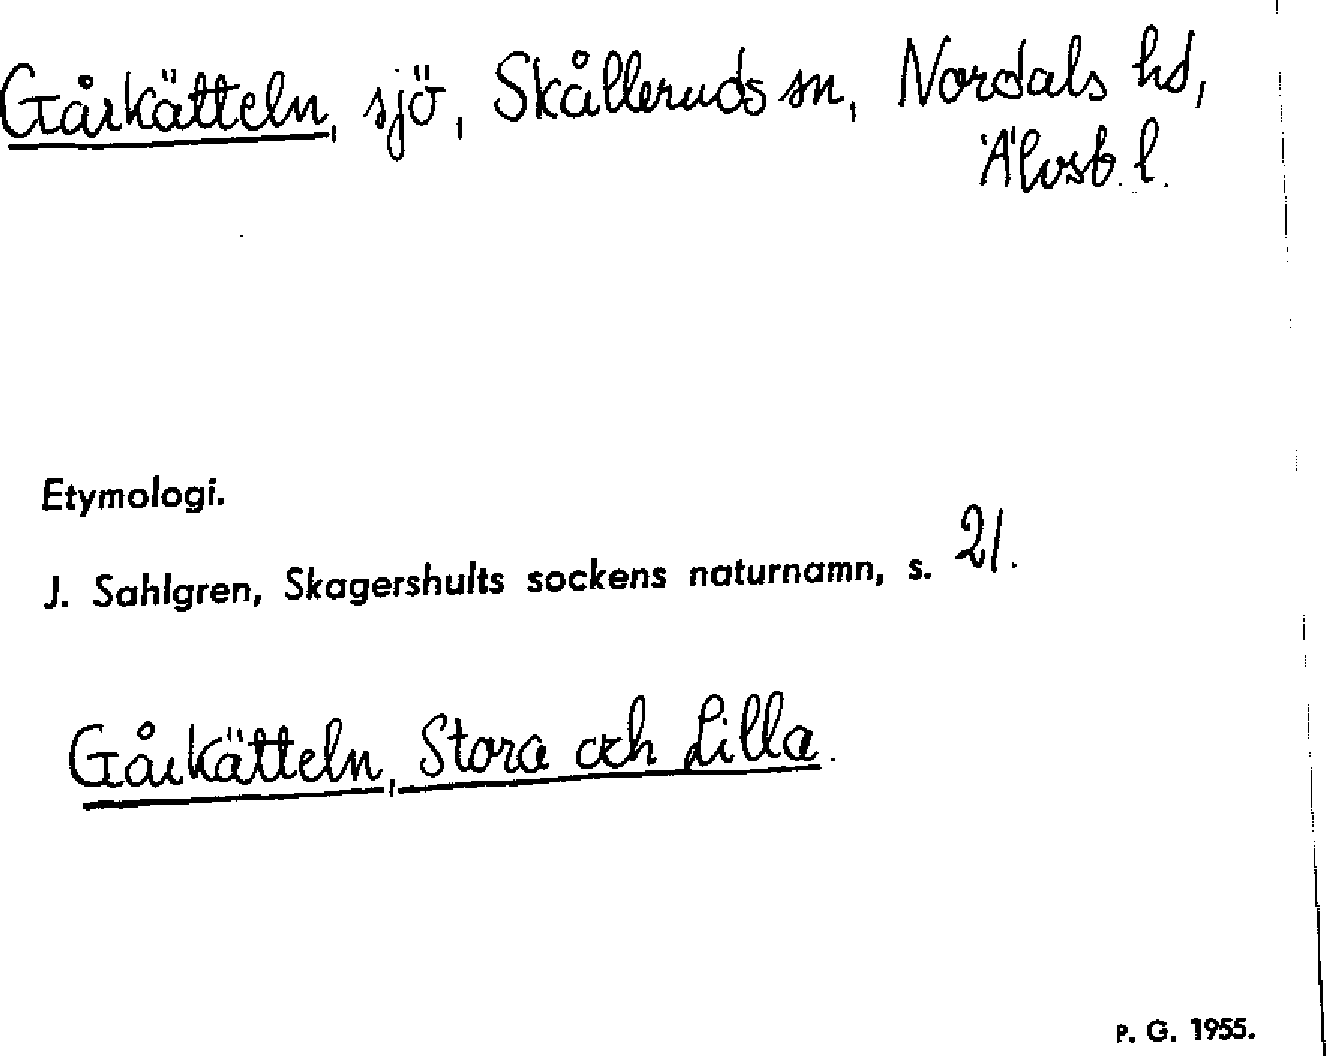 Gårkätteln, sjö, Skålleruds sn, Nordals hd,
Älvsb. l.
Etymologi.
J. Sahlgren, Skagershults sockens naturnamn, s. 21.
Gårkätteln, Stora och Lilla.
P. G. 1955.